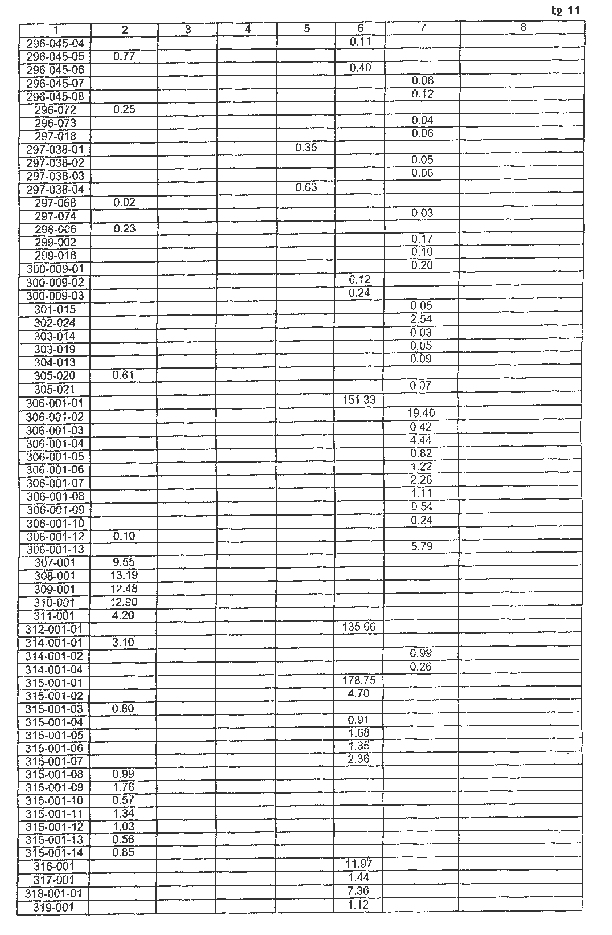 tg 11
1 2 3 4 5 6 7 8
296-045-04 0.11
296-045-05 0.77
296-045-06 0.40
296-045-07 0.08
296-045-08 0.12
296-072 0.25
296-073 0.04
297-018 0.06
297-038-01 0.35
297-038-02 0.05
297-038-03 0.06
297-038-04 0.63
297-068 0.02
297-074 0.03
298-006 0.23
299-002 0.17
299-018 0.10
300-009-01 0.20
300-009-02 0.12
300-009-03 0.24
301-015 0.05
302-024 2.54
303-014 0.03
303-019 0.05
304-013 0.09
305-020 0.61
305-021 0.07
306-001-01 151.33
306-001-02 19.40
306-001-03 0.42
306-001-04 4.44
306-001-05 0.82
306-001-06 1.22
306-001-07 2.26
306-001-08 1.11
306-001-09 0.54
306-001-10 0.24
306-001-12 0.10
306-001-13 5.79
307-001 9.55
308-001 13.19
309-001 12.48
310-001 12.90
311-001 4.20
312-001-01
314-001-01 3.10
314-001-02 0.98
314-001-04 0.26
315-001-01 178.75
315-001-02 4.70
315-001-03 0.60
315-001-04 0.91
315-001-05 1.68
315-001-06 1.35
315-001-07 2.36
315-001-08 0.99
315-001-09 1.76
315-001-10 0.57
315-001-11 1.34
315-001-12 1.03
315-001-13 0.56
315-001-14 0.85
316-001 11.97
317-001 1.44
318-001-01 7.36
319-001 1.12